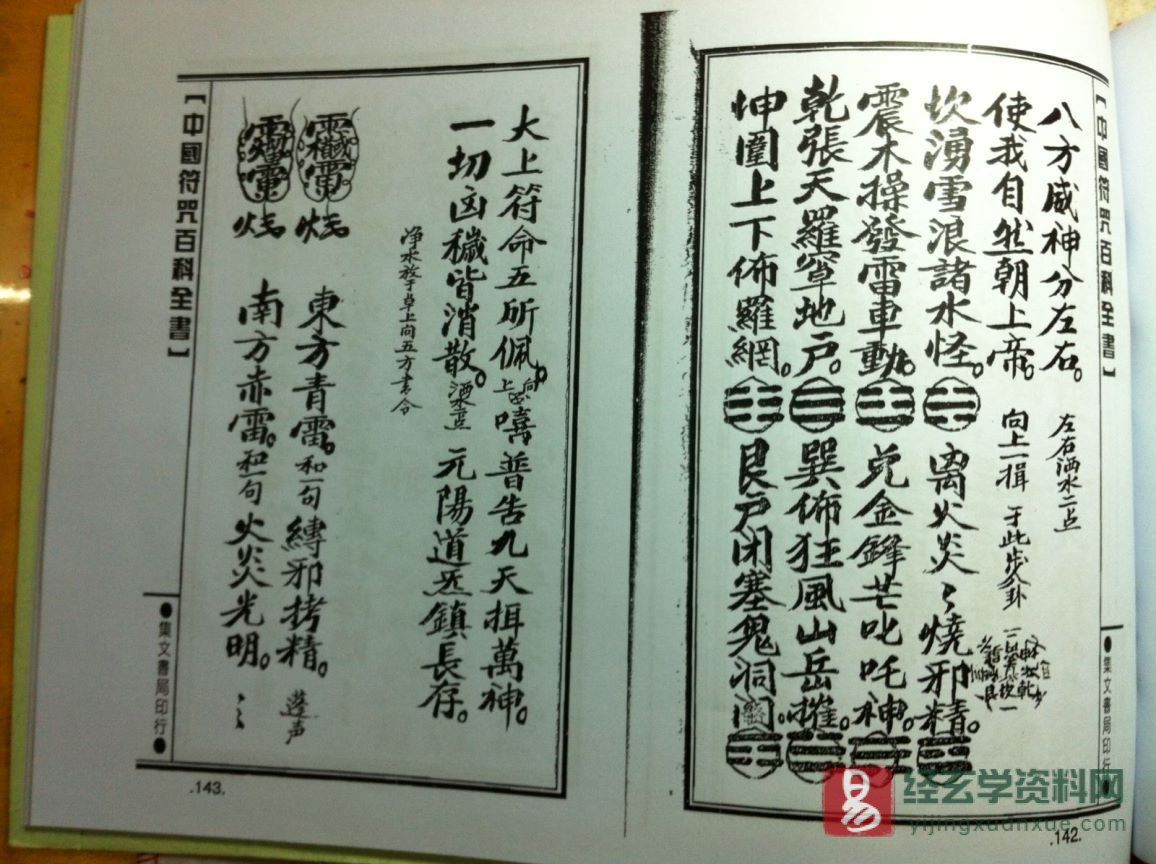 【中國符咒百科全書】
八方威神分左右。左右洒水二点
使我自然朝上帝。向上一揖 于此步八卦
坎湧雪浪諸水怪。離火炎々燒邪精。
震木操發雷車動。兌金鋒芒叱吒神。
乾張天羅罩地戶。巽佈狂風山岳摧。
坤圍上下佈羅網。艮戶閉塞鬼洞
●集文書局印行●
.142.
大上符命五所佩。向上 嘻 普告九天揖萬神。
一切凶穢皆消散。元陽道炁鎮長存。
净水放于草上向五方書令
燒 東方青雷。和一句 縛邪拷精。
燒 南方赤雷。和一句 火炎光明。〻
【中國符咒百科全書】
●集文書局印行●
.143.
易 经玄学资料网
yijingxuanxue.com